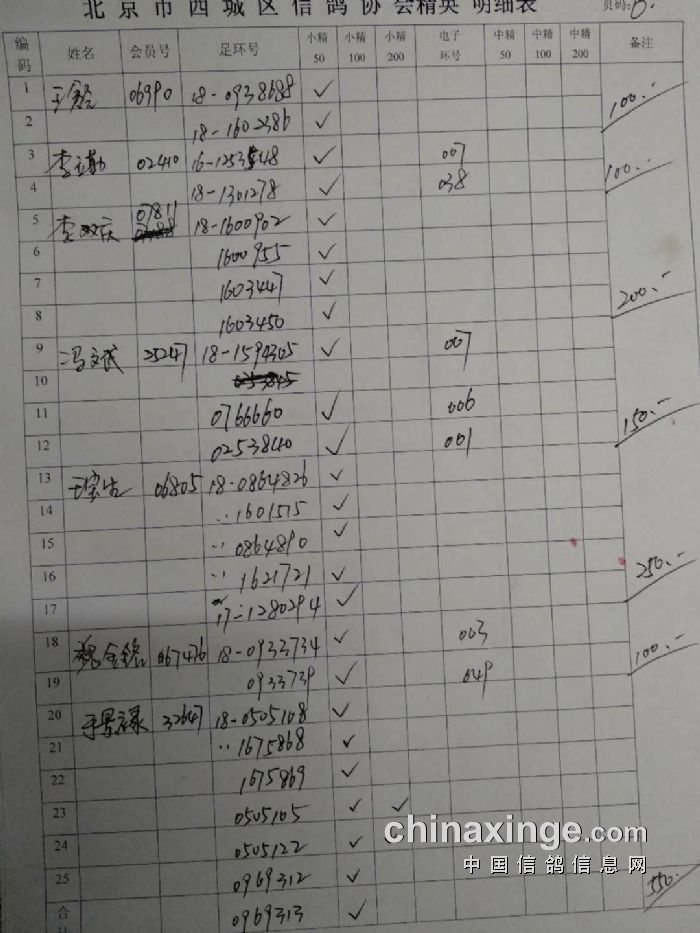 北京市西城区信鸽协会精英 明细表 页码: 8.
编码 姓名 会员号 足环号 小精50 小精100 小精200 电子环号 中精50 中精100 中精200 备注
1 06990 18-0938688 ✓
2 18-1602386 ✓ 100.-
3 02410 16-1253548 ✓ 007
4 18-1301278 ✓ 038 100.-
5 李双庆 07811 18-1600902 ✓
6 1600955 ✓
7 1603447 ✓
8 1603450 ✓ 200.-
9 冯文成 25247 18-1594305 ✓ 007
10
11 0766660 ✓ 006
12 0253840 ✓ 001 150.-
13 06805 18-0864826 ✓
14 ‥1601515 ✓
15 ‥0864890 ✓
16 ‥1621721 ✓
17 17-1280294 ✓ 250.-
18 魏金铭 067476 18-0933734 ✓ 003
19 0933739 ✓ 049 100.-
20 32647 18-0505108 ✓
21 ‥1675868 ✓
22 1675869 ✓
23 0505105 ✓ ✓
24 0505122 ✓ ✓
25 0969312 ✓
合 0969313 ✓ 550.-
chinaxinge.com
中国信鸽信息网